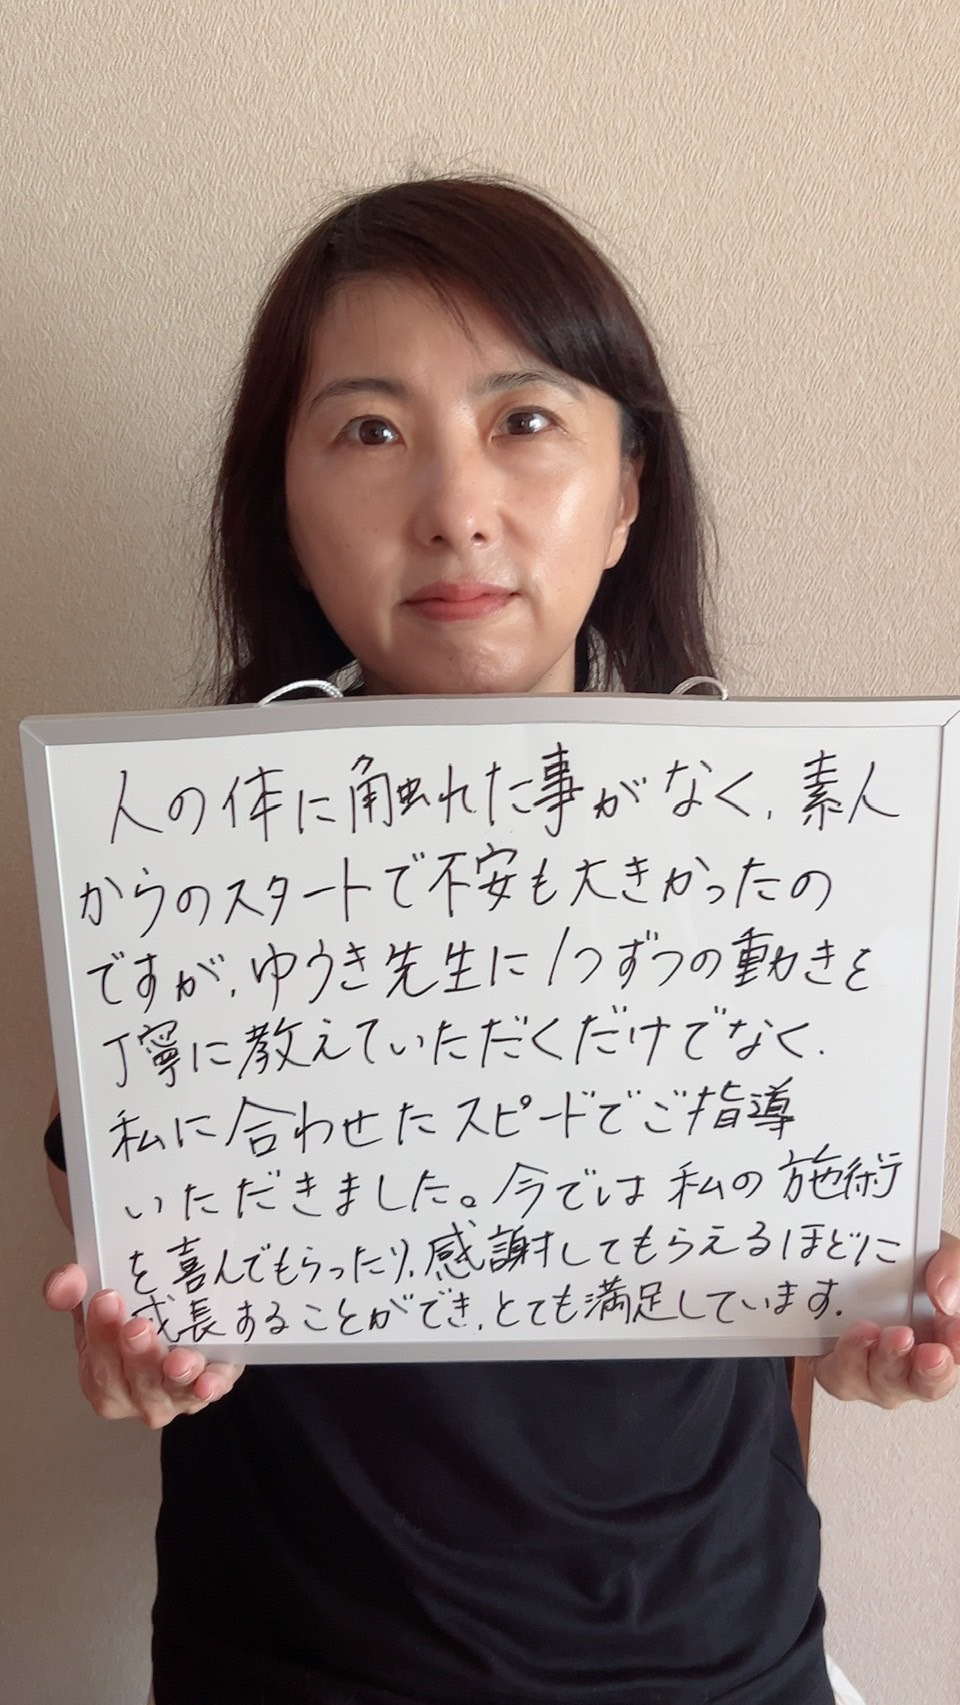 人の体に触れた事がなく、素人
からのスタートで不安も大きかったの
ですが、ゆうき先生に1つずつの動きを
丁寧に教えていただくだけでなく、
私に合わせたスピードでご指導
いただきました。今では私の施術
を喜んでもらったり、感謝してもらえるほどに
成長することができ、とても満足しています。